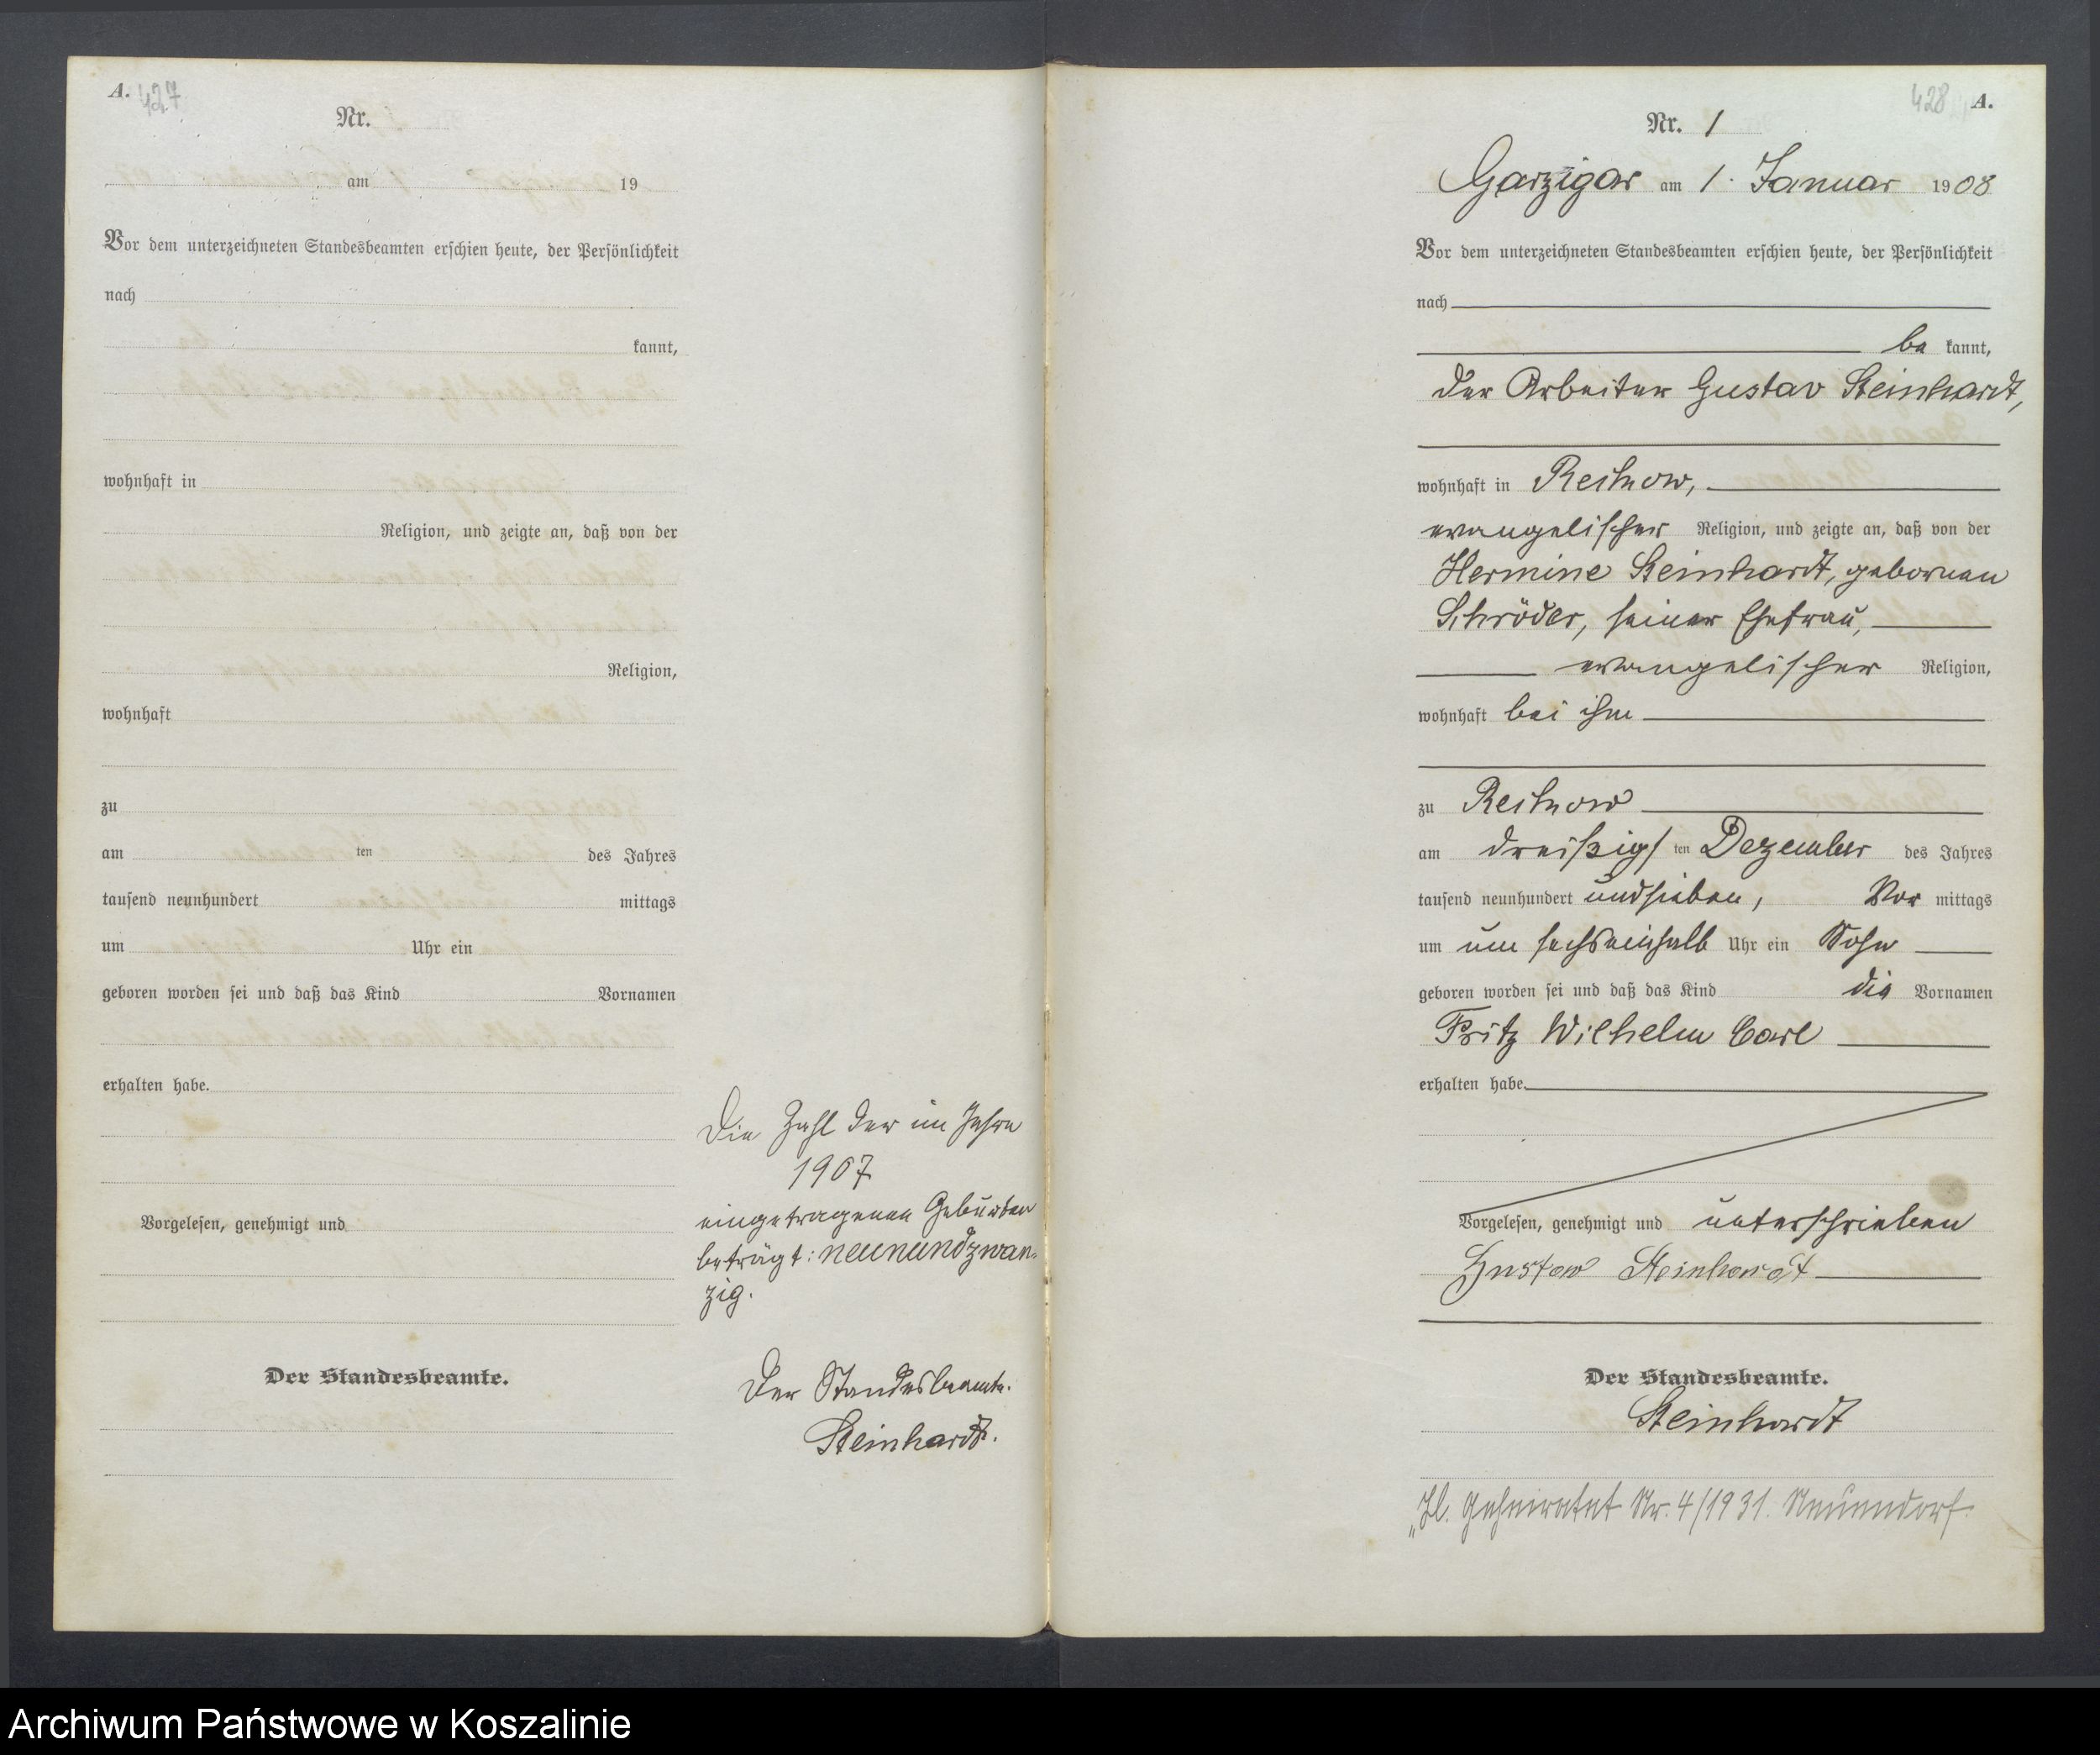 A. 427
Nr.
am 19
Vor dem unterzeichneten Standesbeamten erschien heute, der Persönlichkeit
nach
kannt,
wohnhaft in
Religion, und zeigte an, daß von der
Religion,
wohnhaft
zu
am ten des Jahres
tausend neunhundert mittags
um Uhr ein
geboren worden sei und daß das Kind Vornamen
erhalten habe.
Vorgelesen, genehmigt und
Der Standesbeamte.
Die Zahl der im Jahre
1907
eingetragenen Geburten
beträgt: neunundzwan-
zig.
Der Standesbeamte.
Steinhardt.
428 A.
Nr. 1
Garzigar am 1. Januar 1908
Vor dem unterzeichneten Standesbeamten erschien heute, der Persönlichkeit
nach
be kannt,
der Arbeiter Gustav Steinhardt,
wohnhaft in Reckow,
evangelischer Religion, und zeigte an, daß von der
Hermine Steinhardt, gebornen
Schröder, seiner Ehefrau,
evangelischer Religion,
wohnhaft bei ihm
zu Reckow
am dreißigs ten Dezember des Jahres
tausend neunhundert und sieben, Vor mittags
um um sechseinhalb Uhr ein Sohn
geboren worden sei und daß das Kind die Vornamen
Fritz Wilhelm Carl
erhalten habe.
Vorgelesen, genehmigt und unterschrieben
Gustaw Steinhardt
Der Standesbeamte.
Steinhardt
Geheiratet Nr. 4/1931. Neuendorf.
Archiwum Państwowe w Koszalinie